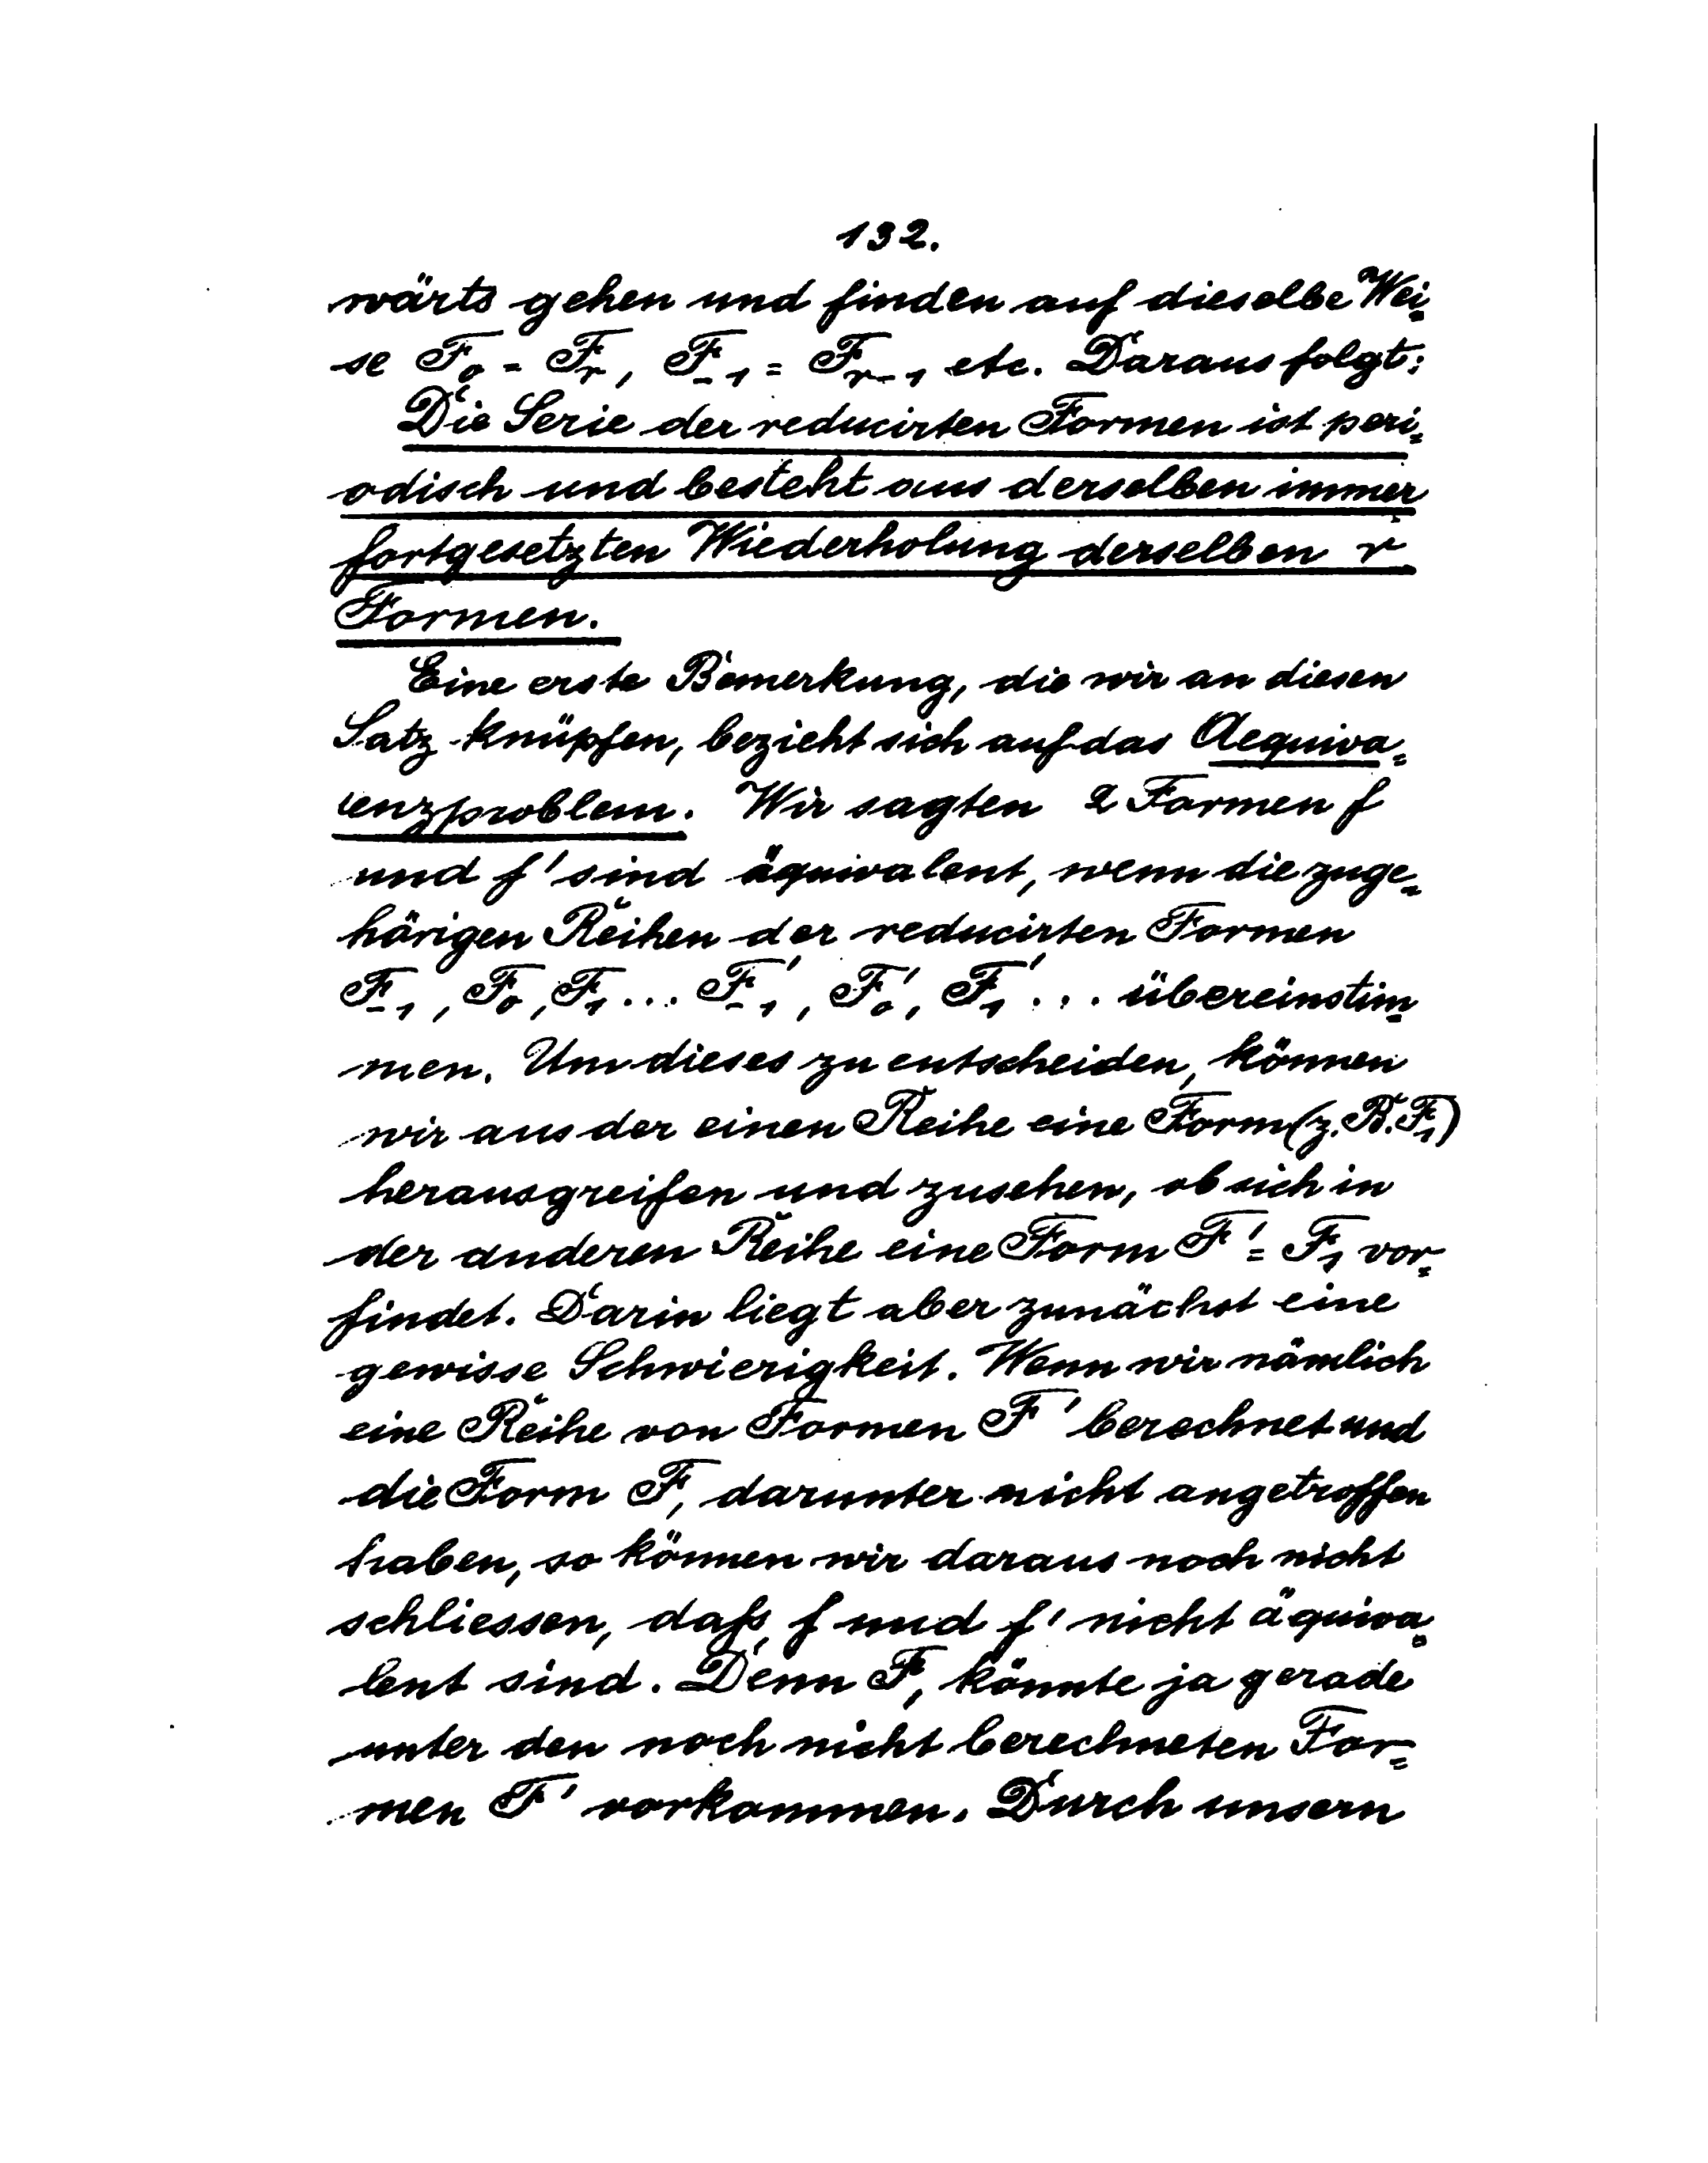 132.
wärts gehen und finden auf dieselbe Wei=
se F₀ = Fᵣ, F₋₁ = Fᵣ₋₁ etc. Daraus folgt:
Die Serie der reducirten Formen ist peri=
odisch und besteht aus derselben immer
fortgesetzten Wiederholung derselben r
Formen.
Eine erste Bemerkung, die wir an diesen
Satz knüpfen, bezieht sich auf das Aequiva=
lenzproblem. Wir sagten 2 Formen f
und f' sind äquivalent, wenn die zuge=
hörigen Reihen der reducirten Formen
F₋₁, F₀, F₁... F₋₁', F₀', F₁'... übereinstim=
men. Um dieses zu entscheiden, können
wir aus der einen Reihe eine Form (z. B. F₁)
herausgreifen und zusehen, ob sich in
der anderen Reihe eine Form F' = F₁ vor=
findet. Darin liegt aber zunächst eine
gewisse Schwierigkeit. Wenn wir nämlich
eine Reihe von Formen F' berechnet und
die Form F₁ darunter nicht angetroffen
haben, so können wir daraus noch nicht
schliessen, daß f und f' nicht äquiva=
lent sind. Denn F₁ könnte ja gerade
unter den noch nicht berechneten For=
men F' vorkommen. Durch unsern